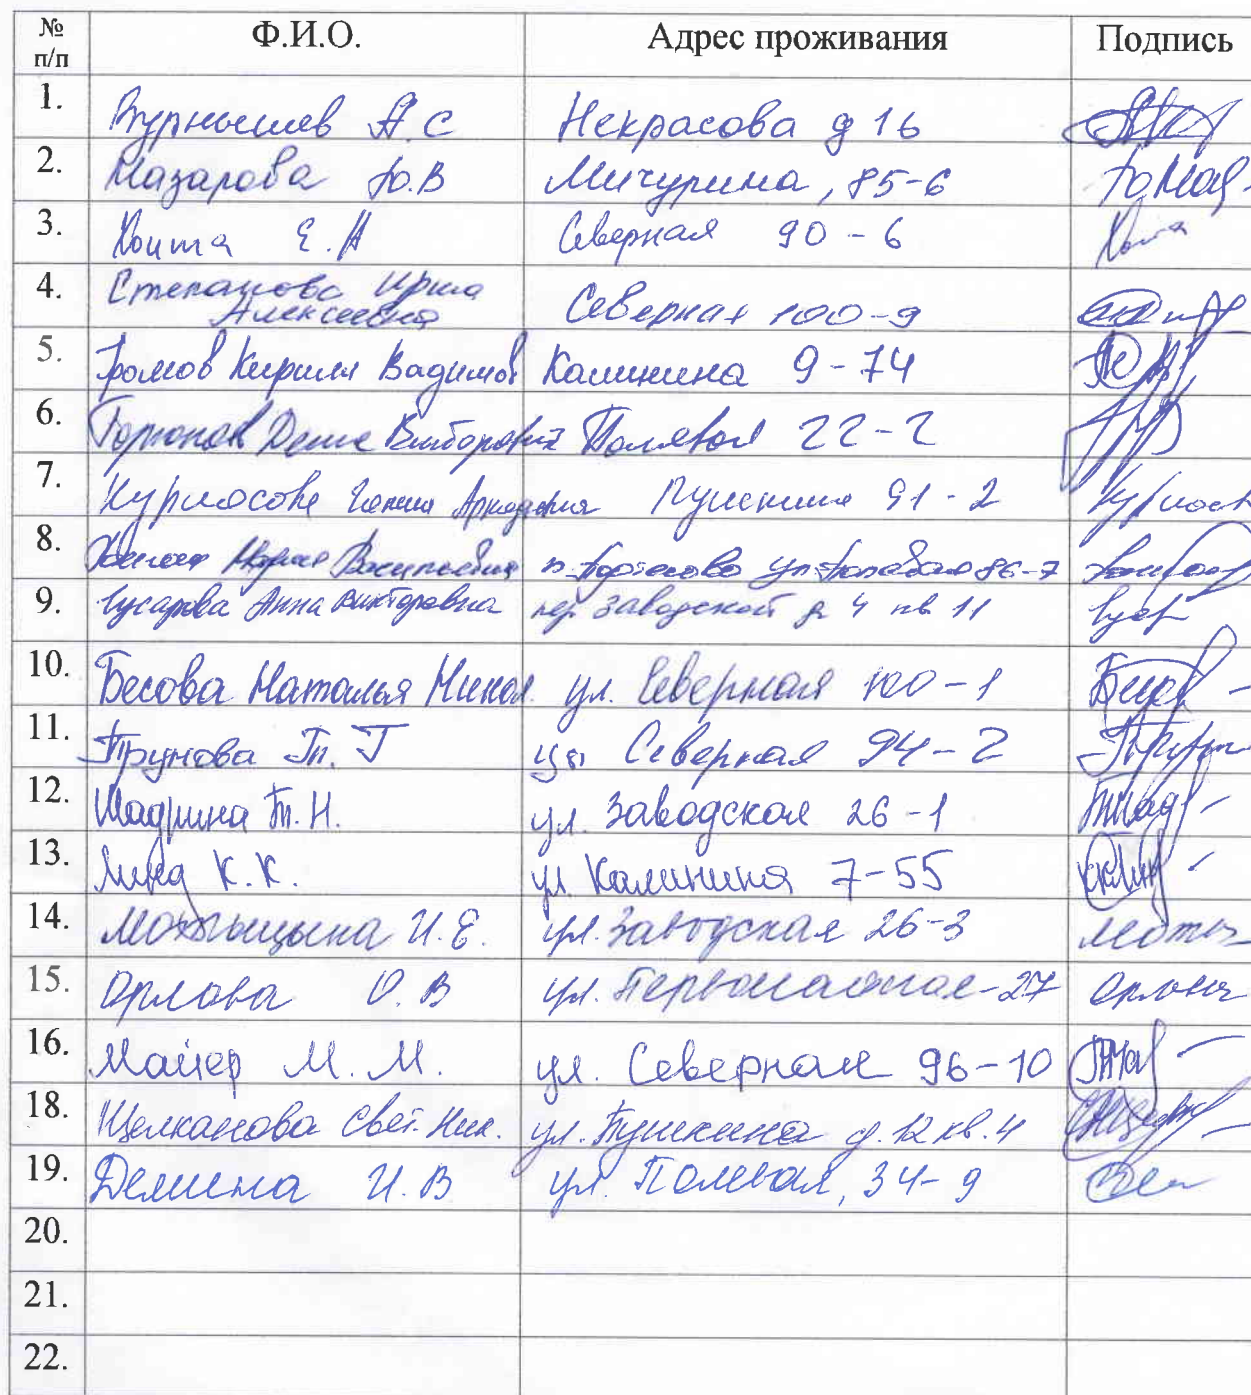 № п/п Ф.И.О. Адрес проживания Подпись
1. А.С Некрасова д 16
2. Назарова Ю.В Мичурина, 85-6
3. Хоита Е.А Северная 90-6
4. Степанова Ирина Алексеевна Северная 100-9
5. Громов Кирилл Вадимов Калинина 9-74
6. Денис Викторович Полевая 22-2
7. Аркадьевна Пушкина 91-2
8. Мария Васильевна 86-7
9. Гусарова Анна Викторовна пер. Заводской д 4 кв 11
10. Бесова Наталья Никол. ул. Северная 100-1
11. Трунова Т. Г ул Северная 94-2
12. Шадрина Т.Н. ул. Заводская 26-1
13. Линд К.К. ул. Калинина 7-55
14. И.Е. ул. Заводская 26-3
15. Орлова О.В ул. Первомайская-27
16. Майер М.М. ул. Северная 96-10
18. Щелканова Свет. Ник. ул. Пушкина д.12 кв.4
19. Демина И.В ул. Полевая, 34-9
20.
21.
22.